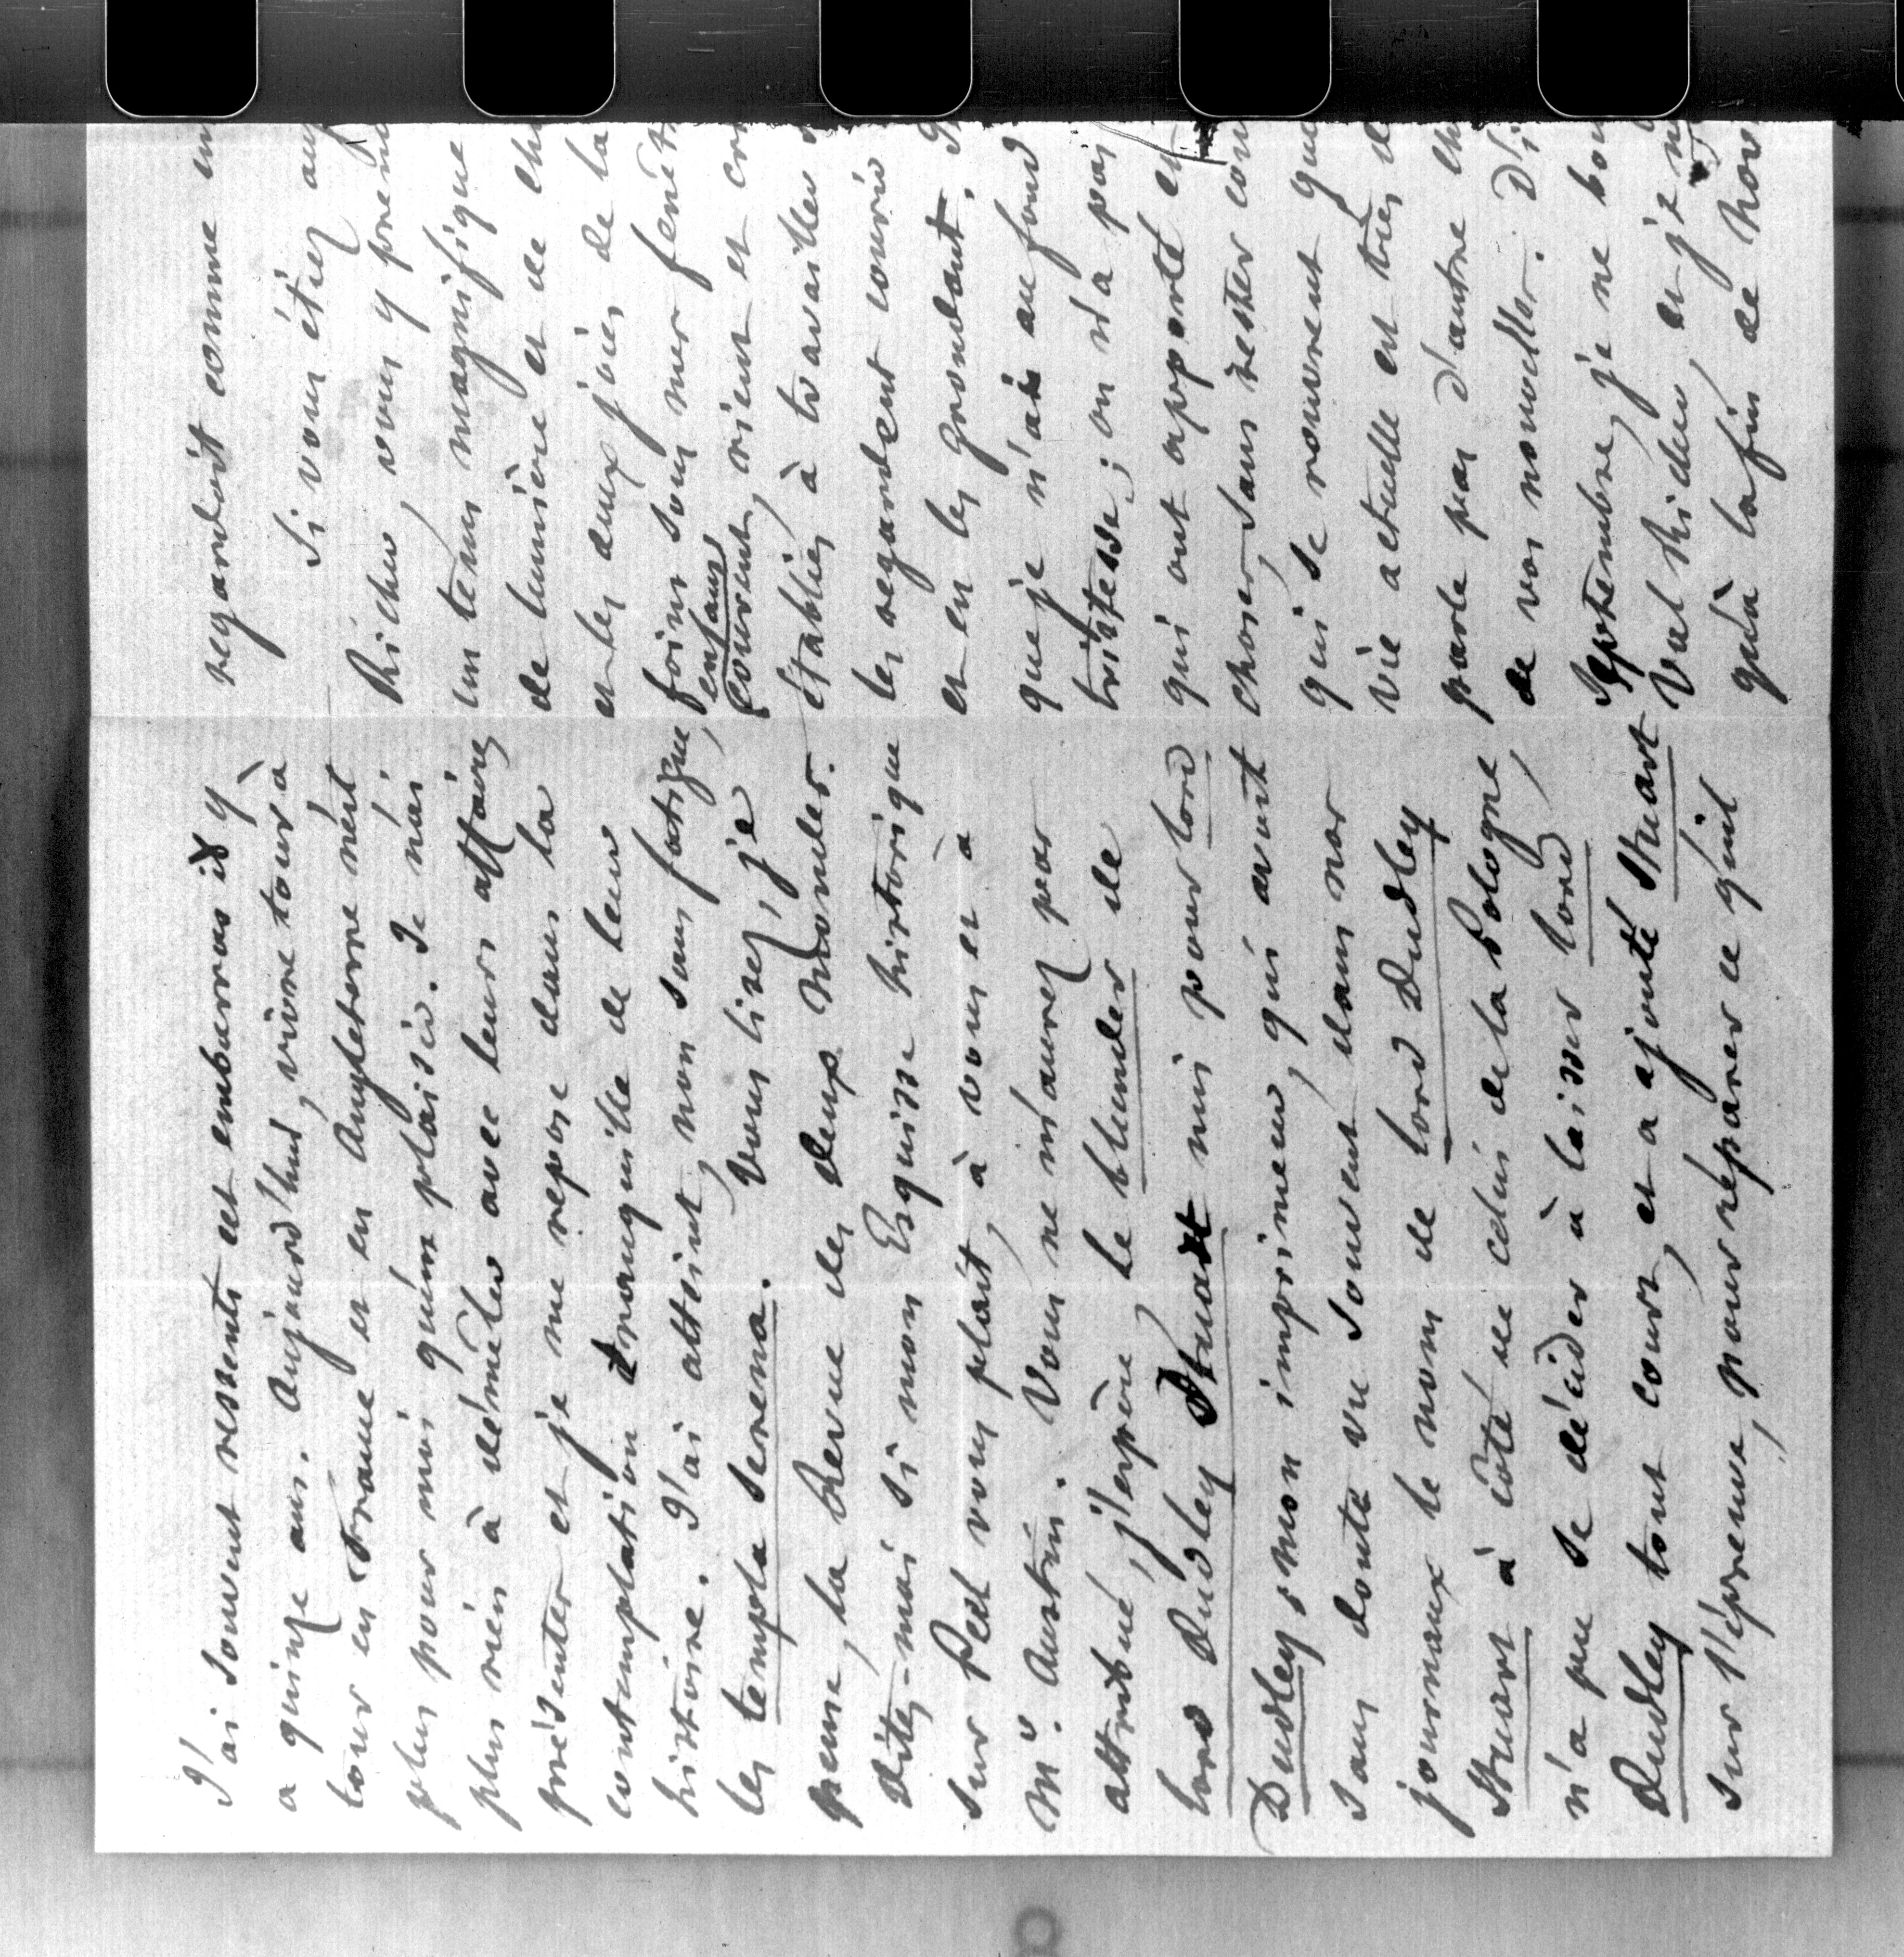 J'ai souvent ressenti cet embarras il y
a quinze ans. Aujourd'hui, vivre tour à
tour en France et en Angleterre n'est
plus pour moi qu'un plaisir. Je n'ai
plus rien à démêler avec leurs affaires
présentes et je me repose dans la
contemplation tranquille de leur
histoire. J'ai atteint, non sans fatigue,
les templa serena. Vous lisez, je
pense, la Revue des deux Mondes.
Dites-moi si mon Esquisse historique
sur Peel vous plaît, à vous et à
Mr. Austin. Vous ne m'aurez pas
attribué, j'espère, le blunder de
lord Dudley Stuart mis pour lord
Dudley; mon imprimeur, qui avait
sans doute vu souvent dans nos
journaux le nom de lord Dudley
Stuart à côté de celui de la Pologne,
n'a pu se décider à laisser lord
Dudley tout court, et a ajouté Stuart
sur l'épreuve, pour réparer ce qu'il
regardoit comme un
Si vous étiez au
Richer, vous y
un tems magnifique
de lumière et de
et les deux de la
foins sous mes
enfans
courent, rient et
établies à travailler
les regardent courir
et en les grondant.
que je n'ai au fond
tristesse; on n'a pas
qui ont apporté
choses, sans rester
qui se rouvrent
vie actuelle est très
parle pas d'autre
de vos nouvelles.
Septembre, je ne
Val Richer, et je
qu'à la fin de